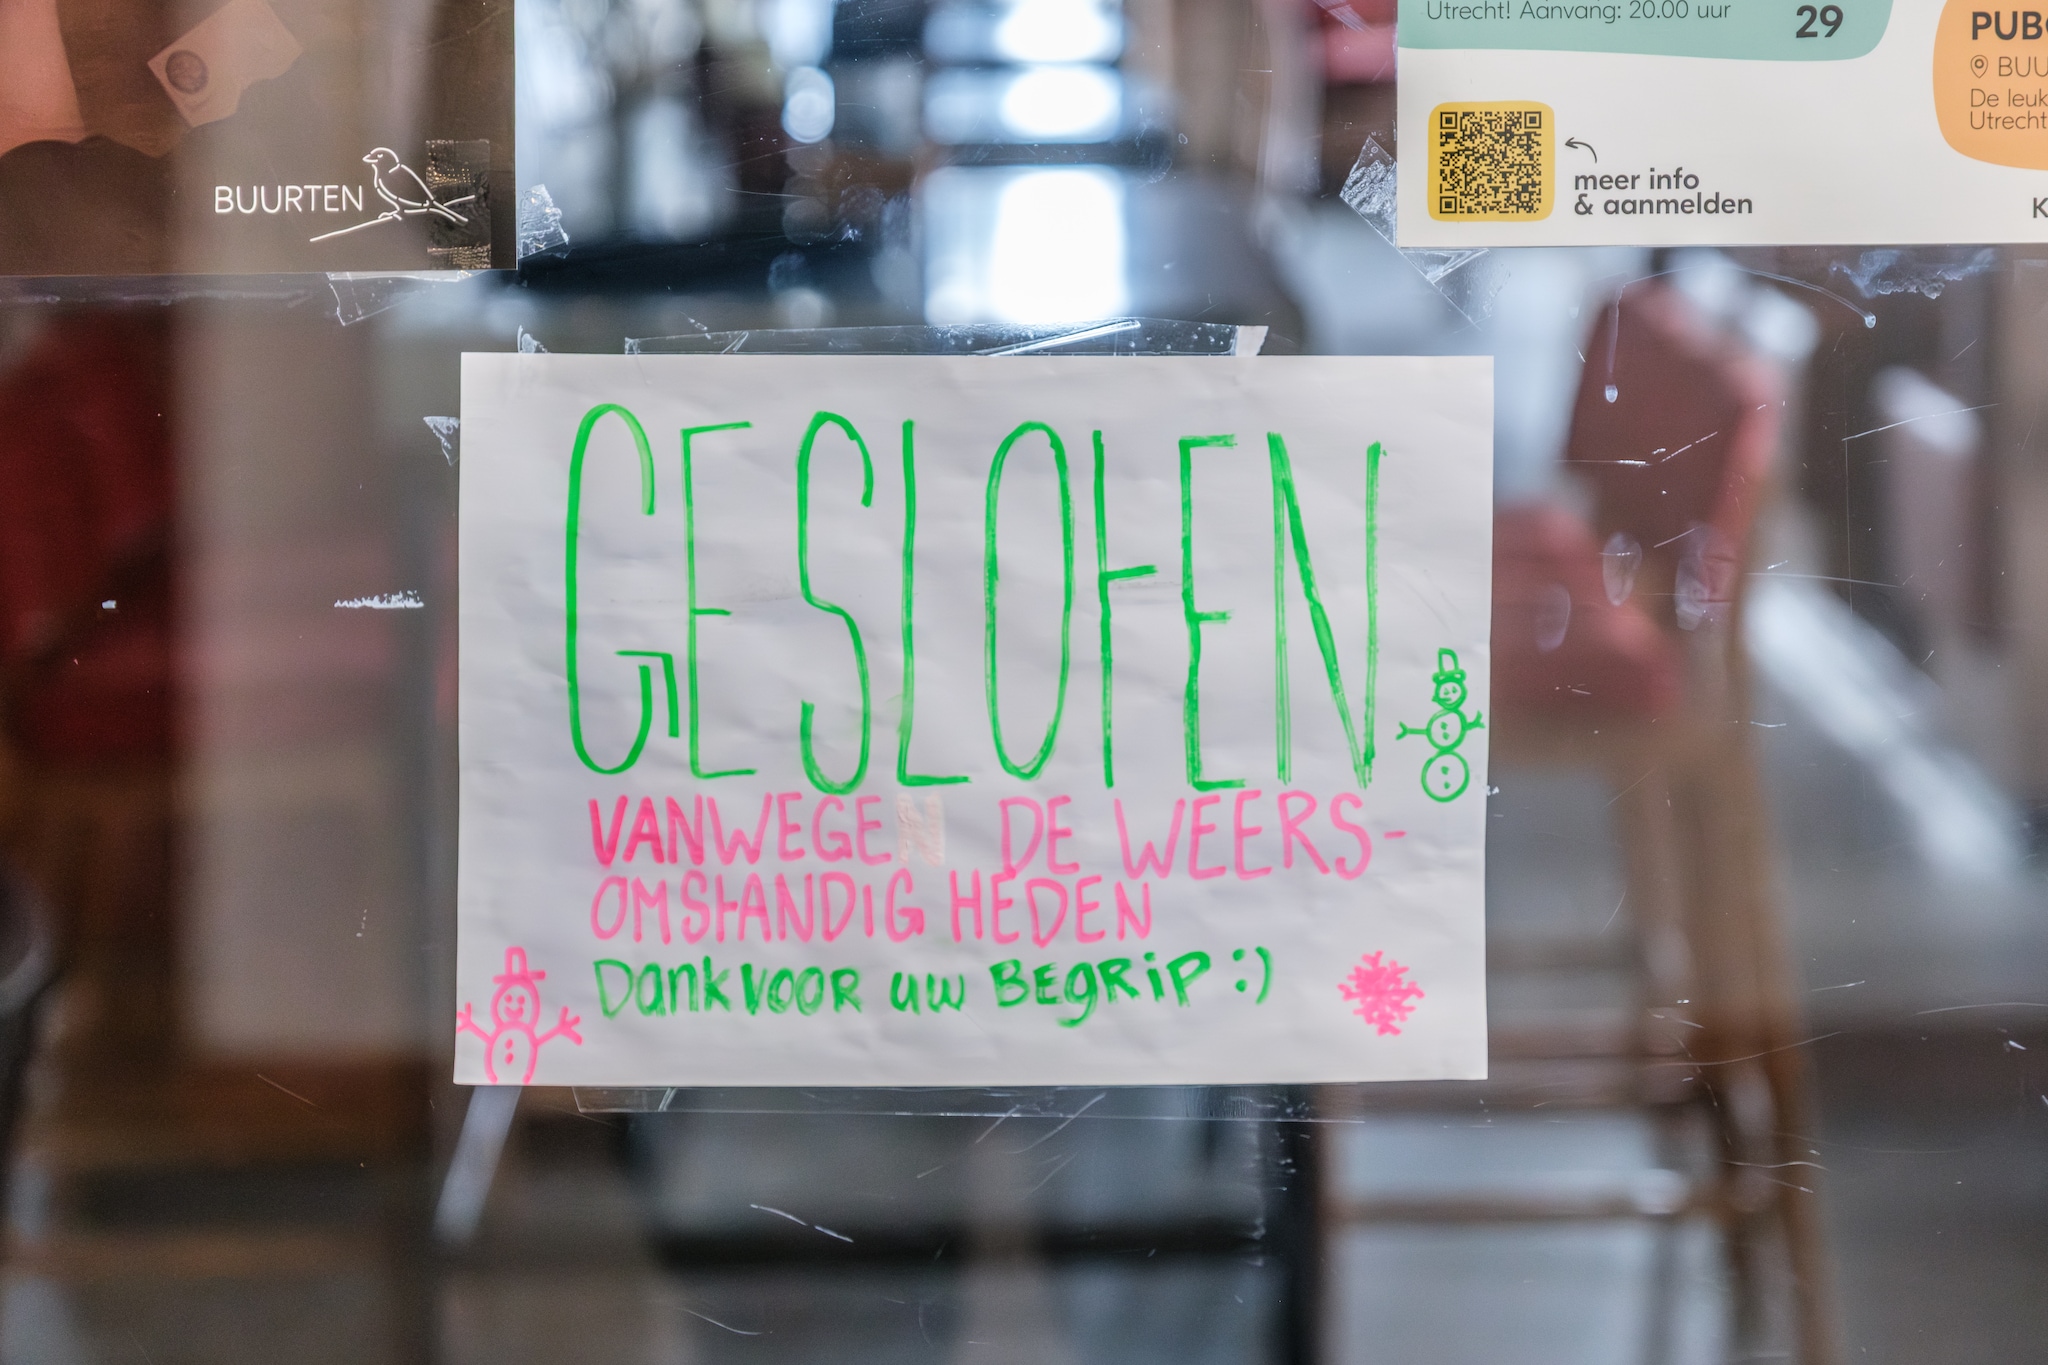 Utrecht! Aanvang: 20.00 uur
29
meer info
& aanmelden
PUB
BUU
De leuk
Utrecht
K
BUURTEN
GESLOTEN
VANWEGE DE WEERS-
OMSTANDIGHEDEN
Dank VOOR uw BEGRiP :)